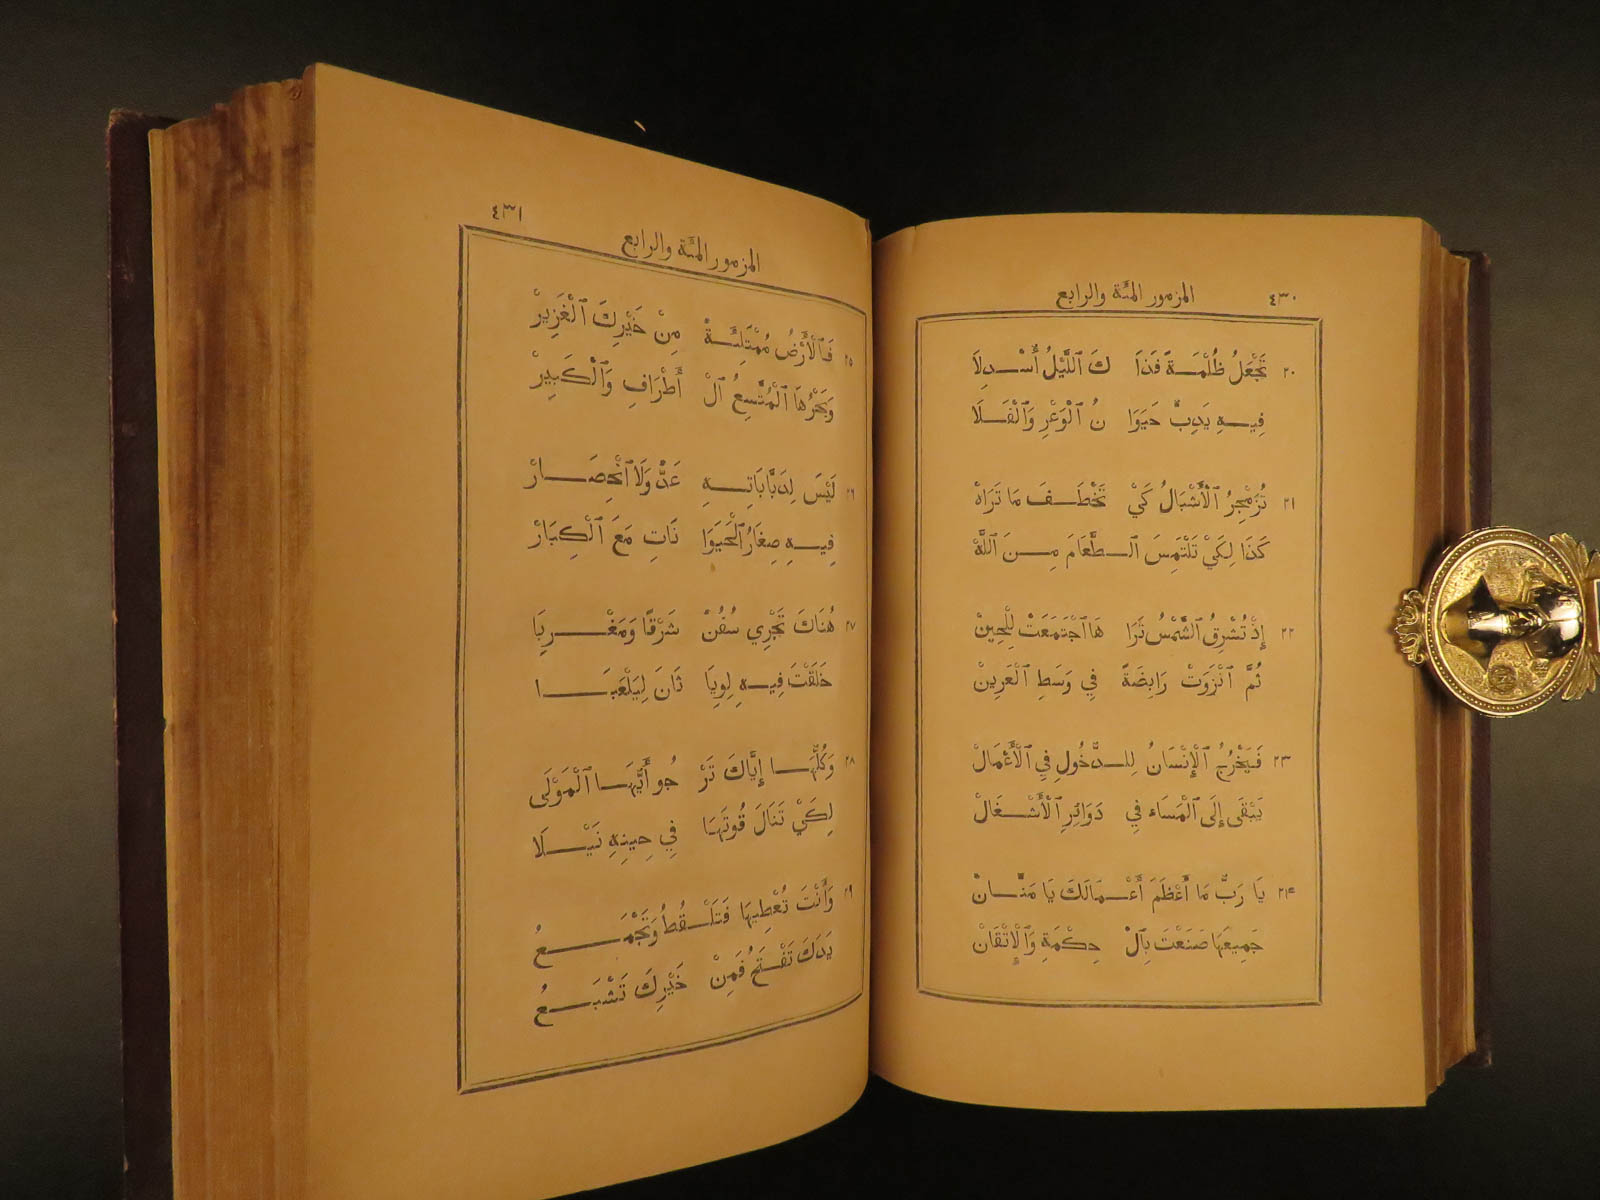 ٤٣٠
المزمور المئة والرابع
٢٠ تَجْعَلُ ظُلْمَـةً فَذَا كَ ٱللَّيْلُ أُسْـدِلَا
فِيـهِ يَدِبُّ حَيَوَا نُ ٱلْوَعْرِ وَٱلْفَـلَا
٢١ تُزَمْجِرُ ٱلْأَشْبَالُ كَيْ تَخْطَـفَ مَا تَرَاهْ
كَذَا لِكَيْ تَلْتَمِسَ ٱلـطَّعَامَ مِـنَ ٱللّٰهْ
٢٢ إِذْ تُشْرِقُ ٱلشَّمْسُ تَرَا هَا ٱجْتَمَعَتْ لِلْحِينْ
ثُمَّ ٱنْزَوَتْ رَابِضَةً فِي وَسَطِ ٱلْعَرِينْ
٢٣ فَيَخْرُجُ ٱلْإِنْسَانُ لِلـدُّخُولِ فِي ٱلْأَعْمَالْ
يَبْقَى إِلَى ٱلْمَسَاء فِي دَوَائِرِ ٱلْأَشْـغَالْ
٢٤ يَا رَبُّ مَا أَعْظَمَ أَعْـمَالَكَ يَا مَنَّـانْ
جَمِيعَهَا صَنَعْتَ بِٱلْ حِكْمَةِ وَٱلْإِتْقَانْ
٤٣١
المزمور المئة والرابع
٢٥ فَٱلْأَرْضُ مُمْتَلِئَـةٌ مِنْ خَيْرِكَ ٱلْغَزِيرْ
وَبَحْرُهَا ٱلْمُتَّسِعُ ٱلْ أَطْرَافِ وَٱلْكَبِيرْ
٢٦ لَيْسَ لِدَبَّابَاتِـهِ عَدٌّ وَلَا ٱنْحِصَـارْ
فِيـهِ صِغَارُ ٱلْحَيَوَا نَاتِ مَعَ ٱلْكِبَارْ
٢٧ هُنَاكَ تَجْرِي سُفُنٌ شَرْقًا وَمَغْـرِبَا
خَلَقْتَ فِيـهِ لِوِيَا ثَانَ لِيَلْعَبَـا
٢٨ وَكُلُّهَـا إِيَّاكَ تَرْ جُو أَيُّهَـا ٱلْمَوْلَى
لِكَيْ تَنَالَ قُوتَهَا فِي حِينِهِ نَيْـلَا
٢٩ وَأَنْتَ تُعْطِيهَا فَتَلْـقُطُ وَتَجْمَـعُ
يَدَكَ تَفْتَحُ فَمِنْ خَيْرِكَ تَشْبَـعُ